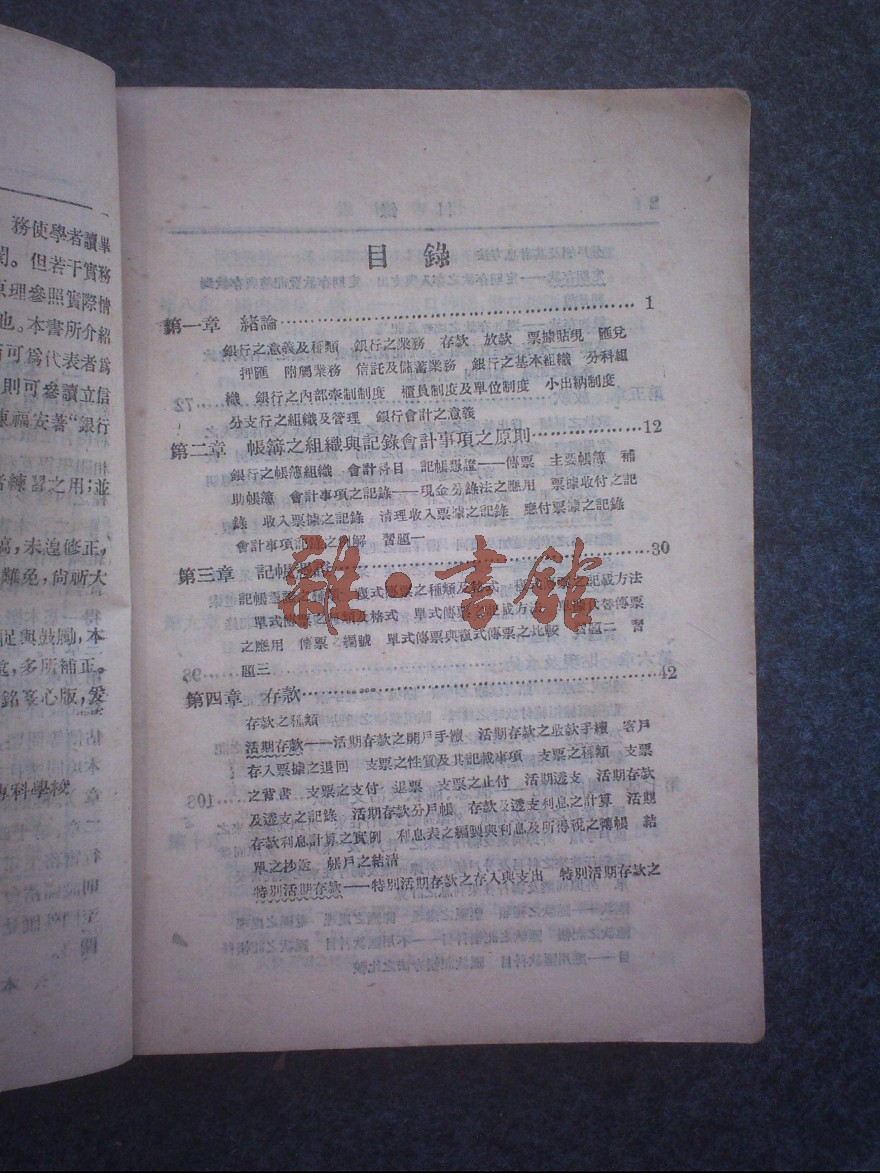 務使學者讀畢
但若干實務
原理參照實際情
也。本書所介紹
可爲代表者爲
則可參讀立信
陳福安著“銀行
練習之用;並
未遑修正,
難免,尙祈大
足與鼓勵,本
多所補正。
銘寔心版,爰
專科學校
目錄
第一章 緒論 1
銀行之意義及種類 銀行之業務 存款 放款 票據貼現 匯兌
押匯 附屬業務 信託及儲蓄業務 銀行之基本組織 分科組
織 銀行之內部牽制制度 櫃員制度及單位制度 小出納制度
分支行之組織及管理 銀行會計之意義
第二章 帳簿之組織與記錄會計事項之原則 12
銀行之帳簿組織 會計科目 記帳憑證——傳票 主要帳簿 補
助帳簿 會計事項之記錄——現金分錄法之應用 票據收付之記
錄 收入票據之記錄 清理收入票據之記錄 應付票據之記錄
會計事項記錄之例解 習題一
第三章 記帳憑證 30
記帳憑證之種類 複式傳票之種類及格式 複式傳票之記載方法
單式傳票之種類及格式 單式傳票之記載方法 傳票
之應用 傳票之編號 單式傳票與複式傳票之比較 習題二 習
題三
第四章 存款 42
存款之種類
活期存款——活期存款之開戶手續 活期存款之收款手續 客戶
存入票據之退回 支票之性質及其記載事項 支票之種類 支票
之背書 支票之支付 退票 支票之止付 活期透支 活期存款
及透支之記錄 活期存款分戶帳 存款及透支利息之計算 活期
存款利息計算之實例 利息表之編製與利息及所得稅之轉帳 結
單之抄送 帳戶之結清
特別活期存款——特別活期存款之存入與支出 特別活期存款之
雜·書館